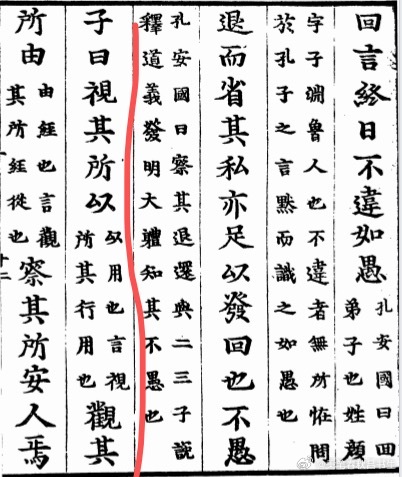 回言終日不違如愚
孔安國曰回
弟子也姓顏
字子淵魯人也不違者無所恠問
於孔子之言默而識之如愚也
退而省其私亦足以發回也不愚
孔安國曰察其退還與二三子說
釋道義發明大軆知其不愚也
子曰視其所以
以用也言視
所其行用也
觀其
所由
由經也言觀
其所經從也
察其所安人焉
十二